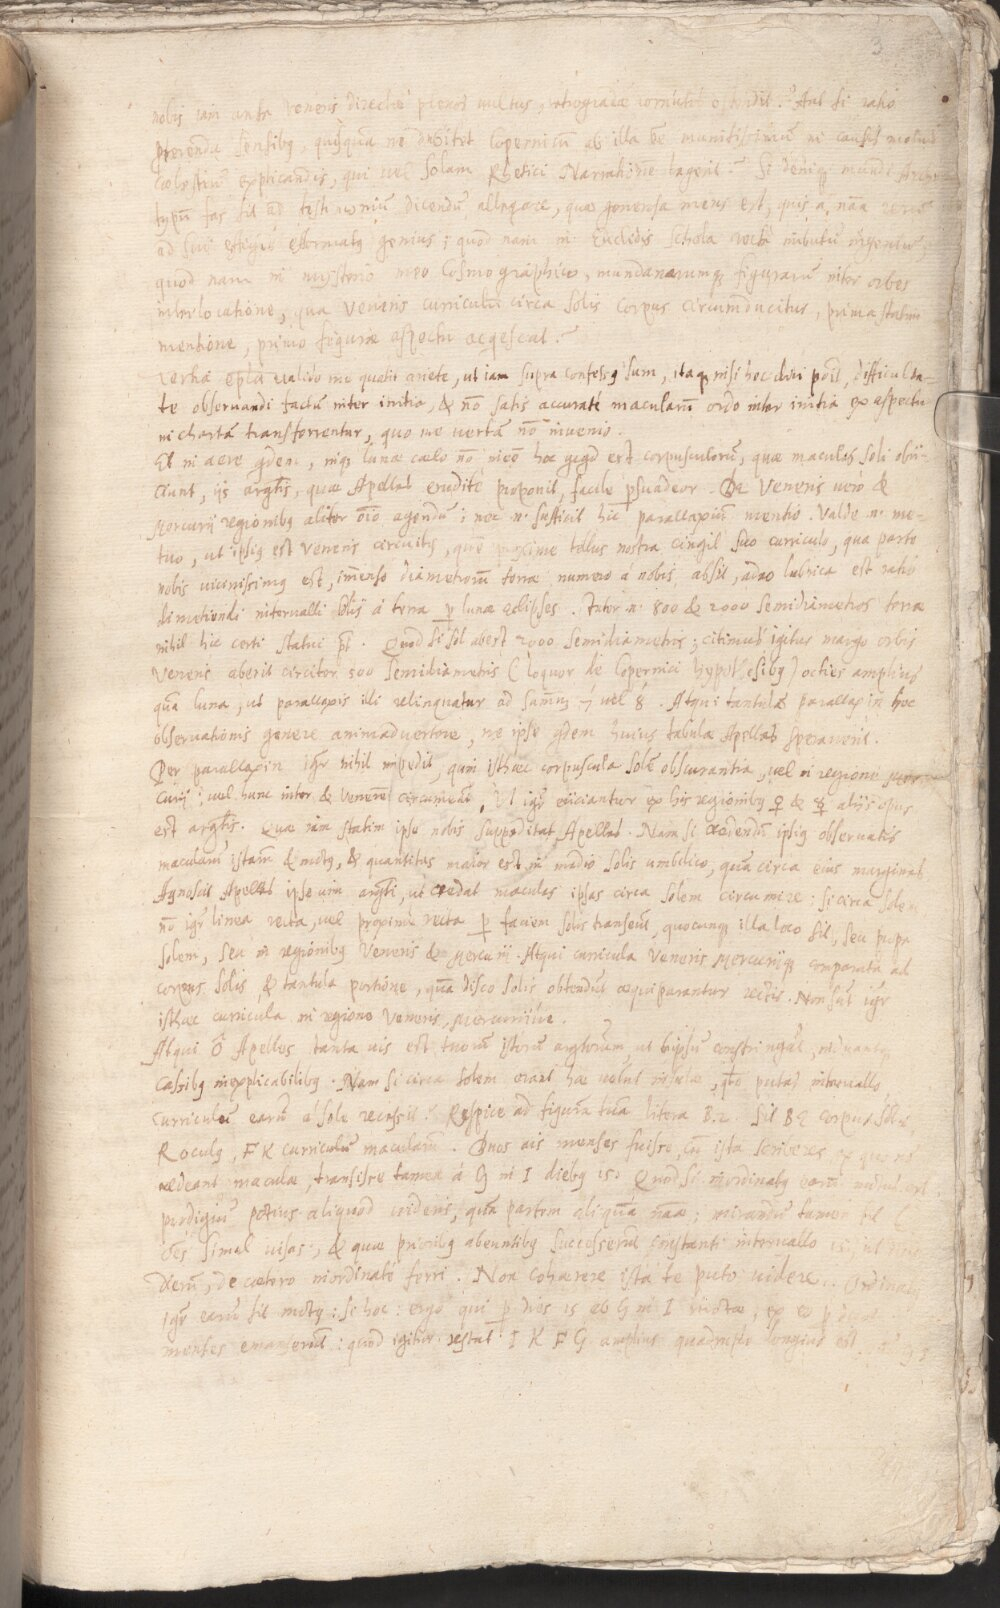 3
nobis iam ante Veneris directae plenos vultus, retrogradae cornutos ostendit? Aut si ratio
praeferenda sensibg, quisquā ne dubitet Copernicū ab illa bn̄ munitissimū in causis motuū
coelestiū explicandis, qui vel solam Rhetici Narrationē legerit? Si deniq mundi
typū fas sit ad testimoniū dicendū allegare, quae generosa mens est, quis á nāa rerū
ad sui effigiē efformatg genius; quod nam in Euclidis schola recte imbutū ingeniū,
quod nam in mysterio meo Cosmographico, mundanarumq figurarū inter orbes
interlocatione, qua Veneris curriculū circa solis corpus circumducitur, prima statim
mentione, primo figurae aspectu acqescat?
valido me quatit ariete, ut iam supra confessg sum, itaq nisi hoc dari pōit, difficulta-
te observandi factū inter initia, & nō satis accurate macularū ordo inter initia ex aspectu
in chartā transferrentur, quo me vertā nō invenio.
Et in aere qdem, inq lunae caelo nō hoc qcqd est corpusculorū, quae maculas soli obii-
ciunt, ijs argtis, quae Apelles erudite proponit, facile psuadeor. De Veneris vero &
Mercurij regionibg aliter oīo agendū: nec n. sufficit hic parallaxiū mentio. Valde n. me-
tuo, ut ipsig est Veneris circuitg, quē proxime tellus nostra cingit suo curriculo, qua parte
nobis vicinissimg est, im̄enso diametrorū terrae numero á nobis absit, adeo lubrica est ratio
dimetiendi intervalli Solis á terra p lunae eclipses. Inter n. 800 & 2000 semidiametros terrae
nihil hic certi statui pt. Quod si sol abest 2000 semidiametros; citimus igitur margo orbis
Veneris aberit circiter 500 semidiametris (loquor de Copernici hypothesibg) octies amplius
quā luna, ut parallaxis illi relinquatur ad sum̄ 7 vel 8. Atqui tantulā parallaxin hoc
observationis genere animadvertere, ne ipse qdem huius tabulae Apelles speraverit.
Per parallaxin igr nihil impedit, quin isthaec corpuscula Solē obscurantia, vel in regione Mer-
curij; vel hunc inter & Venerē circumeāt. Ut igr eiiciantur ex his regionibg ♀ & ☿ aliis opus
est argtis. Quae iam statim ipse nobis suppeditat Apelles. Nam si credendū ipsig observatis
macularū istarū & motg, & quantitas maior est in medio Solis umbilico, quā circa eius margines
Agnoscit Apelles ipse vim argti, ut credat maculas ipsas circa solem circumire: si circa solem
nō igr linea recta, vel proxime recta p faciem solis transeūt, quocunq illa loco sit, seu prope
solem, seu in regionibg Veneris & Mercurii. Atqui curricula Veneris Mercuriiq comparata ad
corpus Solis, & tantula portione, quā disco Solis obtendūt aequiparantur rectis. Non sūt igr
isthaec curricula in regione Veneris, Mercuriive.
Atqui ô Apelles tanta vis est tuorū istorū argtorum, ut teipsū constringāt,
cassibg inexplicabilibg. Nam si circa solem erant hae velut insulae, qto putas intervallo
curriculū earū á sole recessit? Respice ad figurā tuā litera B. Sit BC corpus Solis
R oculg, FK curriculū macularū. Duos ais menses fuisse, cū ista scriberes, ex quo nō
redeant maculae, transisse tamen á G in I diebg 15. Quod si inordinatg earū
prodigiū potius aliquod videris, quā partem aliquā nāae; mirandū tamen
oēs simul visas, & quae prioribg abeuntibg successerūt constanti intervallo
de caetero inordinate ferri. Non cohaerere ista te puto videre. Ordinatg
igr earū sit motg: si hoc: ergo qui p dies 15 ab G in I vectae,
menses emanserūt: quod igitur restat I K F G amplius quadruplo longius est